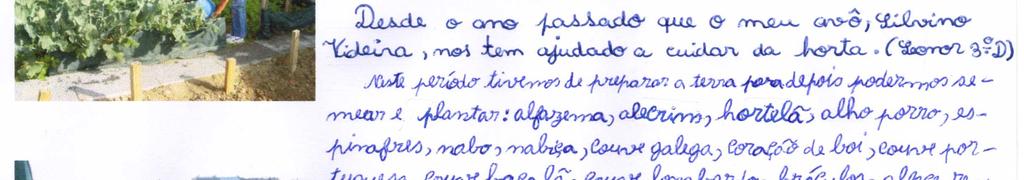 Desde o ano passado que o meu avô, Silvino
Videira, nos tem ajudado a cuidar da horta. (Leonor 3ºD)
Neste período tivemos de preparar a terra para depois podermos se-
mear e plantar: alfazema, alecrim, hortelã, alho porro, es-
pinafres, nabo, nabiça, couve galega, coração de boi, couve por-
tuguesa, couve